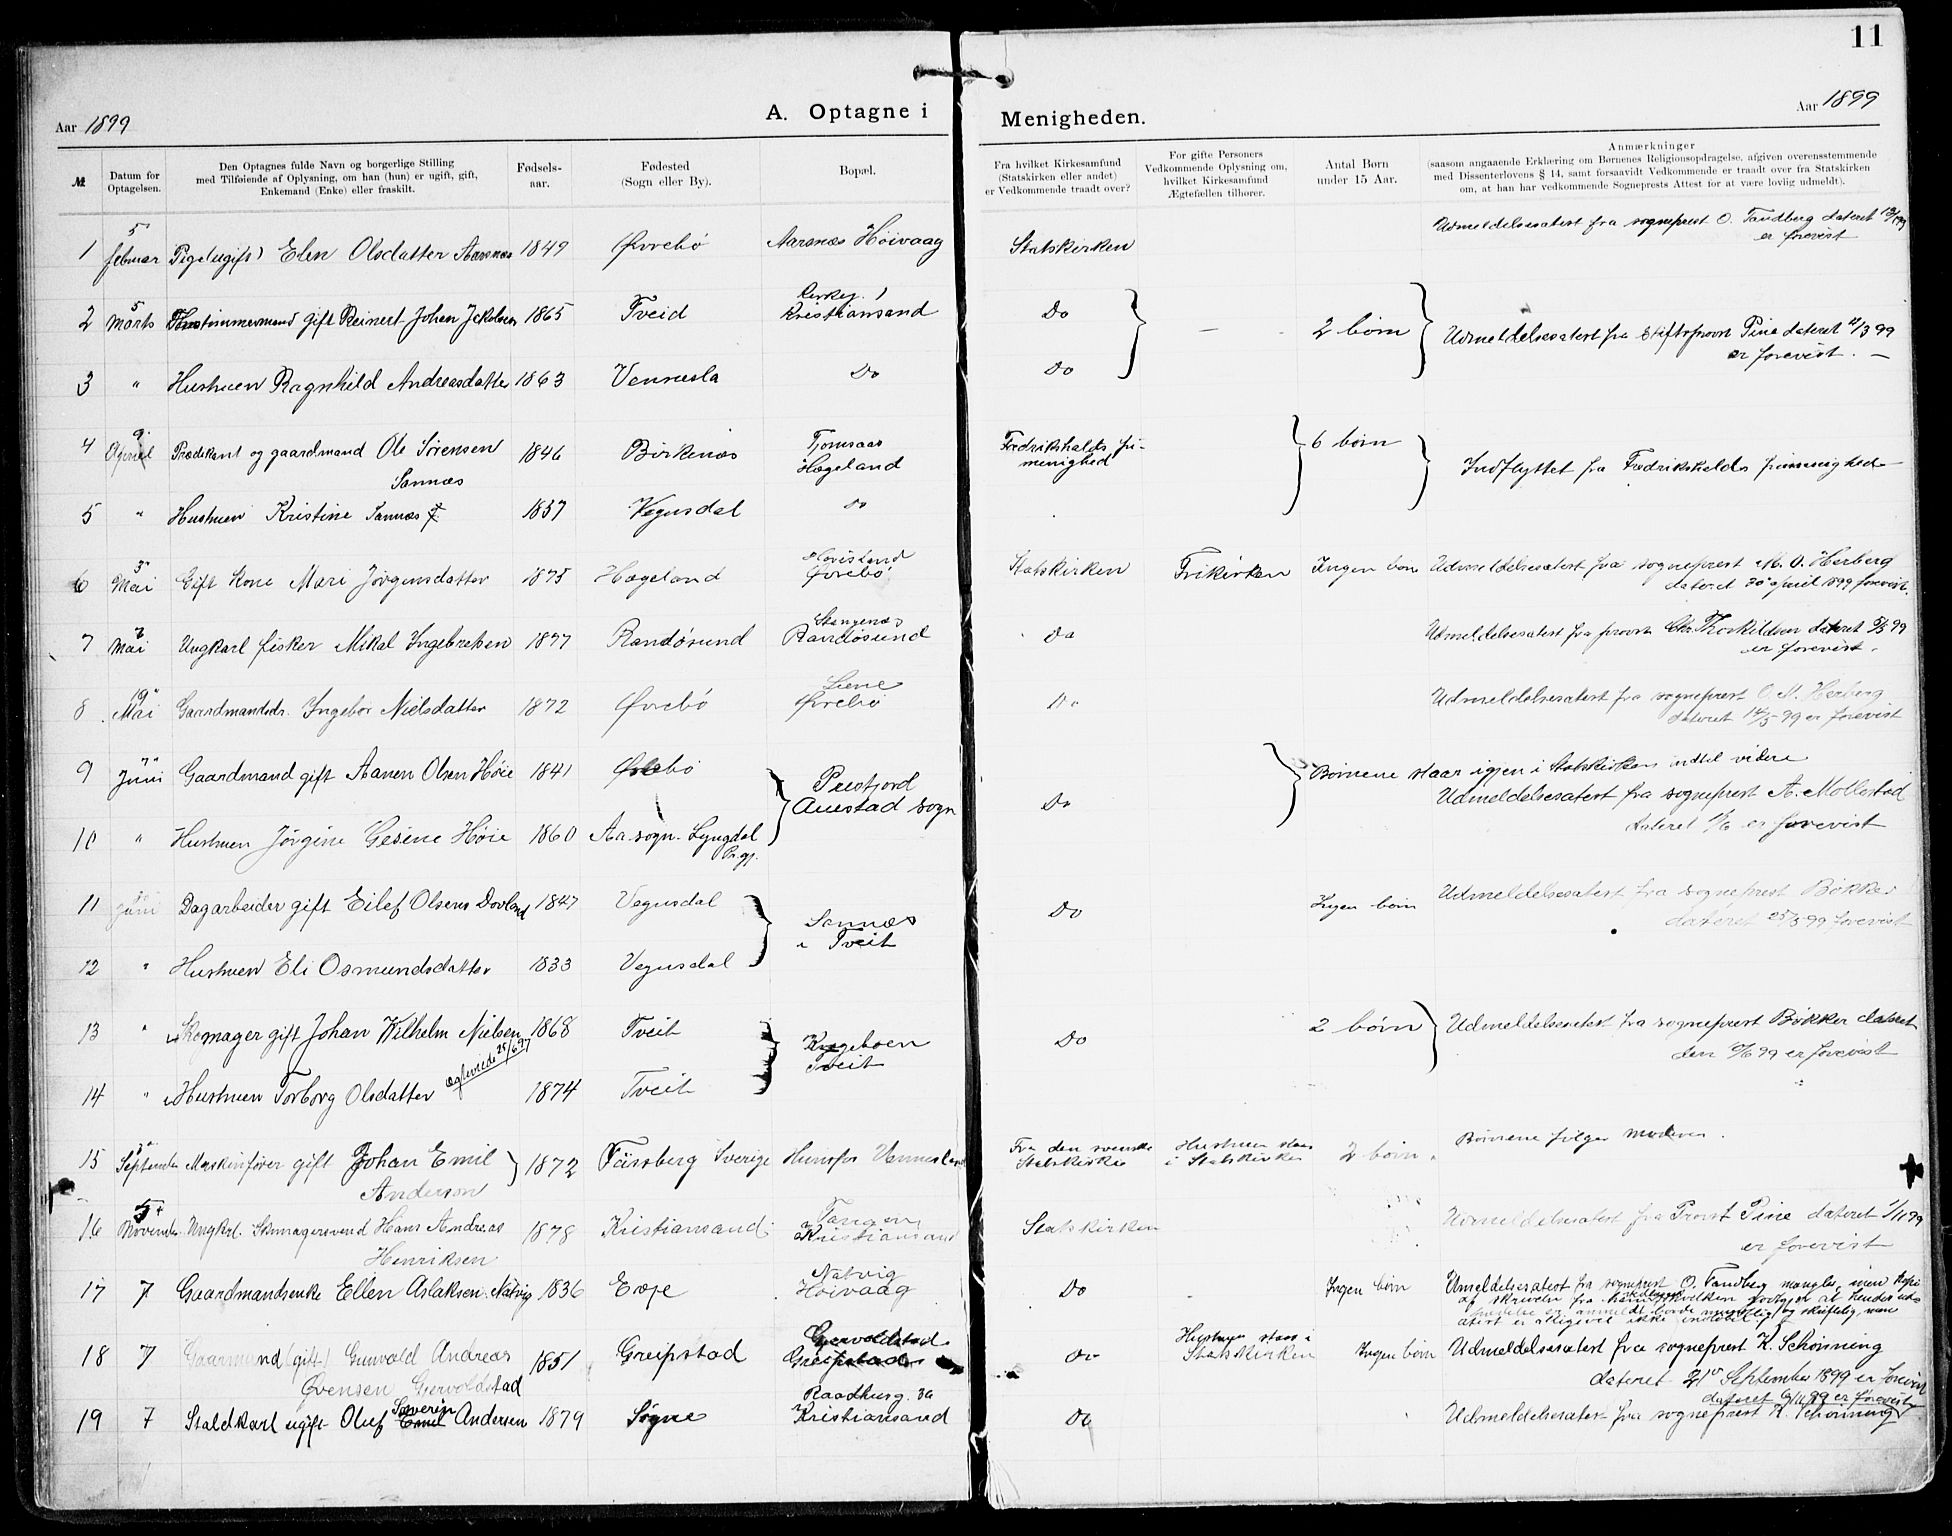 11
Aar 1899
A. Optagne i Menigheden.
Aar 1899
№
Datum for Optagelsen.
Den Optagnes fulde Navn og borgerlige Stilling
med Tilføiende af Oplysning, om han (hun) er ugift, gift,
Enkemand (Enke) eller fraskilt.
Fødsels-
aar.
Fødested
(Sogn eller By).
Bopæl.
Fra hvilket Kirkesamfund
(Statskirken eller andet)
er Vedkommende traadt over?
For gifte Personers
Vedkommende Oplysning om,
hvilket Kirkesamfund
Ægtefællen tilhører.
Antal Børn
under 15 Aar.
Anmærkninger
(saasom angaaende Erklæring om Børnenes Religionsopdragelse, afgiven overensstemmende
med Dissenterlovens § 14, samt forsaavidt Vedkommende er traadt over fra Statskirken
om, at han har vedkommende Sogneprests Attest for at være lovlig udmeldt).
1 5 februar Pige (ugift) Elen Olsdatter Aarsnæs 1849 Øvrebö Aarsnæs Höivaag Statskirken Udmeldelsesatest fra sogneprest O. Tandberg dateret
er forevist
2 5 Marts Tømmermand gift Reinert Johan 1865 Tveid Kirkeg. 1 Kristiansand Do 2 börn Udmeldelsesatest fra Stiftsprovst Pine dateret /3 99
er forevist.
3 " Hustruen Ragnhild Andreasdatter 1863 Vennesla Do Do
4 9 April Prædikant og gaardmand Ole Sörensen 1846 Birkenæs Tjomsaas Hægeland Fredrikshalds fri-menighed 6 börn Indflyttet fra Fredrikshalds frimenighed
Sannæs
5 " Hustruen Kristine Sannæs 1857 Vegusdal Do
6 3 Mai Gift Kone Mari Jörgensdatter 1875 Hægeland Øvrebö Statskirken Frikirken Ingen börn Udmeldelsesatest fra sogneprest O. Herberg
dateret 20 april 1899 forevist.
7 7 Mai Ungkarl fisker Mikal Ingebretsen 1877 Randösund Stangenæs Randösund Do Udmeldelsesatest fra provst Chr. Thorkildsen dateret 5/5 99
er forevist.
8 19 Mai Gaardmandsdr. Ingebor Nielsdatter 1872 Øvrebö Øvrebö Do Udmeldelsesatest fra sogneprest O. N. Herberg
dateret 14/5-99 er forevist
9 Juni Gaardmand gift Aanen Olsen Höie 1841 Øvrebö Do Børnene staar igjen i Statskirken indtil videre
Udmeldelsesatest fra sogneprest A. Mollestad
dateret /6 er forevist
10 " Hustruen Jörgine Gesine Höie 1860 Aa sogn. Lyngdal Pr.gj.
11 Juni Dagarbeider gift Eilef Olsen Dovland 1847 Vegusdal Sannæs i Tveit Do Ingen börn Udmeldelsesatest fra sogneprest Bökker
dateret 25/5 99 forevist
12 " Hustruen Eli Osmundsdatter 1833 Vegusdal
13 " Skomager gift Johan Wilhelm Nielsen 1868 Tveit Tveit Do 2 börn Udmeldelsesatest fra sogneprest Bökker dateret
den /6 99 er forevist
14 " Hustruen Torborg Olsdatter 1874 Tveit
15 September Maskinfører gift Johan Emil Anderson 1872 Fässberg Sverige Hunsfos Vennesla Fra den svenske Statskirke Hustruen staar i Statskirken 2 börn Børnene følger moderen.
16 5 November Ungkrl. Skomagersvend Hans Andreas Henriksen 1878 Kristiansand Tangen Kristiansand Statskirken Udmeldelsesatest fra Provst Pine dateret 1/11 99
er forevist
17 7 Gaardmandsenke Ellen Aslaksen Natvig 1836 Evje Natvig Höivaag Do Ingen börn Udmeldelsesatest fra sogneprest O. Tandberg mangler, men
18 7 Gaarmand (gift) Gunvald Andreas Øvensen Gervoldstad 1851 Greipstad Gervoldstad Greipstad Do Hustruen staar i Statskirken Ingen börn Udmeldelsesatest fra sogneprest K. Schönning
dateret 21 September 1899 er forevist
19 7 Staldkarl ugift Oluf Severin Andersen 1879 Søgne Raadhusg. 39 Kristiansand Do dateret 6/11 99 er forevist
Udmeldelsesatest fra sogneprest K. Schönning